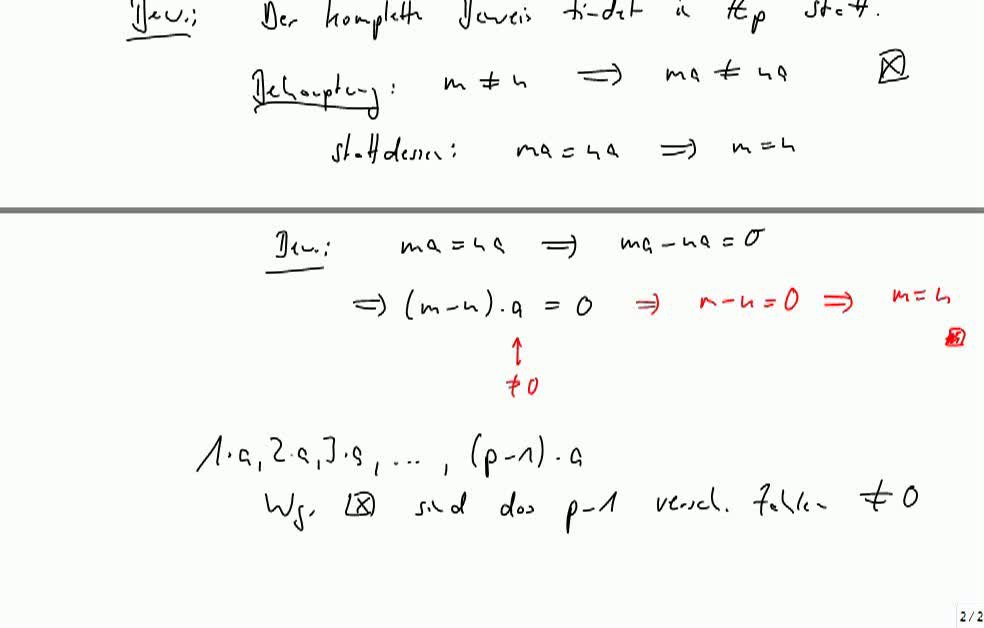 Bew.: Der komplette Beweis findet in ℤp statt.
Behauptung: m ≠ n ⟹ ma ≠ na ⊠
stattdessen: ma = na ⟹ m = n
Bew.: ma = na ⟹ ma - na = 0
⟹ (m-n)·a = 0 ⟹ m-n=0 ⟹ m=n
↑
≠0
1·a, 2·a, 3·a, ..., (p-1)·a
Wg. ⊠ sind das p-1 versch. Zahlen ≠ 0
2/2